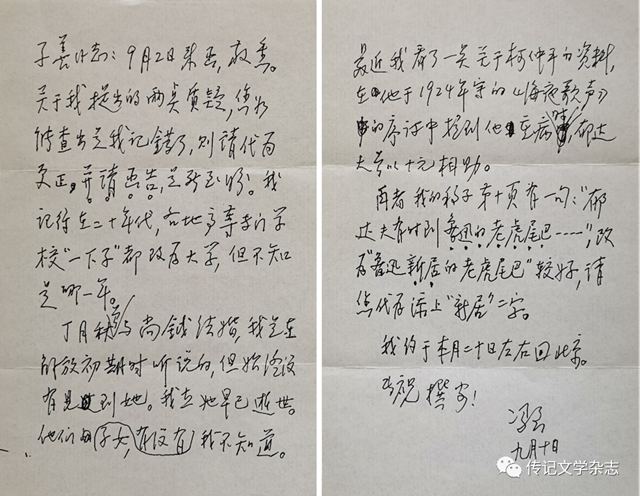 子善同志：9月2日来函，敬悉。
关于我提出的两点质疑，您如
能查出是我记错了，则请代为
更正，并请函告，是所至盼。我
记得在二十年代，各地高等专门学
校“一下子”都改为大学，但不知
是哪一年。
丁月秋与尚钺结婚，我是在
解放初期时听说的，但始终没
有见到她。我想她早已逝世。
他们的子女，有没有我不知道。
最近我看了一点关于柯仲平的资料，
在他于1924年写的《海夜歌声》
的序诗中提到他在病时，郁达
夫曾以十元相助。
再者我的稿子第十页有一句：“郁
达夫有时到鲁迅的老虎尾巴……”，改
为“鲁迅新居的老虎尾巴”较好，请
您代为添上“新居”二字。
我约于本月二十日左右回北京。
专祝 撰安！
冯至
九月十日
传记文学杂志